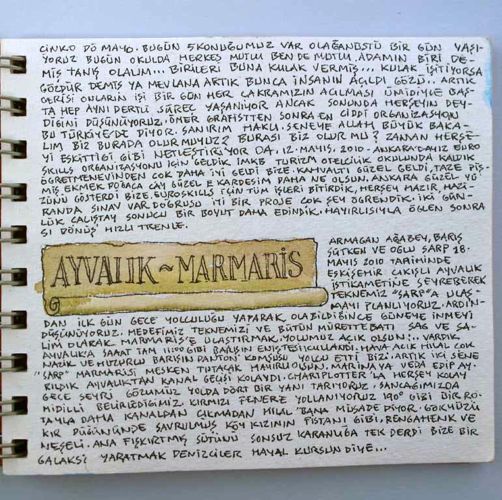 CINKO DÖ MAYO. BUGÜN 5 KONUĞUMUZ VAR OLAĞANÜSTÜ BİR GÜN YAŞI-
YORUZ BUGÜN OKULDA HERKES MUTLU BEN DE MUTLU. ADAMIN BİRİ DE-
MİŞ TANIŞ OLALIM... BİRİLERİ BUNA KULAK VERMİŞ... KULAK İŞİTİYORSA
GÖZDÜR DEMİŞ YA MEVLANA ARTIK BUNCA İNSANIN AÇILDI GÖZÜ.. ARTIK
ÖTESİ ONLARIN İŞİ BİR GÜN HER ÇAKRAMIZIN AÇILMASI ÜMİDİYLE BAŞ-
TA HEP AYNI DERTLİ SÜREÇ YAŞANIYOR ANCAK SONUNDA HERŞEYİN DEY-
DİĞİNİ DÜŞÜNÜYORUZ. ÖMER GRAFİSTTEN SONRA EN GİDDİ ORGANİZASYON
BU TÜRKİYE'DE DİYOR. SANIRIM HAKLI. SENEYE ADAM BÜYÜK BAKALA
LIM BİZ BURADA OLUR MUYUZ? BURASI BİZ OLUR MU? ZAMAN HERŞE-
Yİ ESKİTTİĞİ GİBİ NETLEŞTİRİYOR DA. 12. MAYIS. 2010 - ANKARA'DAYIZ EURO
SKILLS ORGANİZASYONU İÇİN GELDİK İMKB TURİZM OTELCİLİK OKULUNDA KALDIK
ÖĞRETMENEVİNDEN ÇOK DAHA İYİ GELDİ BİZE. KAHVALTI GÜZEL GELDİ, TAZE PİŞ-
MİŞ EKMEK POĞAÇA ÇAY GÜZEL E KARDEŞİM DAHA NE OLSUN. ANKARA GÜZEL YÜ
ZÜNÜ GÖSTERDİ BİZE. EUROSKILLS İÇİN TÜM İŞLERİ BİTİRDİK, HERŞEY HAZIR, HAZİ-
RANDA SINAV VAR. DOĞRUSU İYİ BİR PROJE ÇOK ŞEY ÖĞRENDİK. İKİ GÜN-
LÜK ÇALIŞTAY SONUCU BİR BOYUT DAHA EDİNDİK. HAYIRLISIYLA ÖĞLEN SONRA
SI DÖNÜŞ HIZLI TRENLE.
AYVALIK ~ MARMARİS
ARMAĞAN AĞABEY, BARIŞ
SÜTKEN VE OĞLU SARP 18.
MAYIS 2010 TARİHİNDE
ESKİŞEHİR ÇIKIŞLI AYVALIK
İSTİKAMETİNE SEYREDEREK
TEKNEMİZ "SARP"A ULAŞ
MAYI PLANLIYORUZ. ARDIN-
DAN İLK GÜN GECE YOLCULUĞU YAPARAK, OLABİLDİĞİNCE GÜNEYE İNMEYİ
DÜŞÜNÜYORUZ. HEDEFİMİZ TEKNEMİZİ VE BÜTÜN MÜRETTEBATI SAĞ VE SA-
LİM OLARAK MARMARİS'E ULAŞTIRMAK. YOLUMUZ AÇIK OLSUN!.. VARDIK
AYVALIK'A SAAT TAM 1100 GİBİ
NALIK VE HUZURLU BARIŞLA YOLCU ETTİ BİZİ. ARTIK İKİ SENE
"SARP" MARMARİSİ MESKEN TUTACAK HAYIRLI OLSUN. MARİNAYA VEDA EDİP AY-
RILDIK AYVALIKTAN KANAL GEÇİŞİ KOLAYDI. CHARTPLOTTER'LA HERŞEY KOLAY
GECE SEYRİ GÖZÜMÜZ YOLDA DÖRT BİR YANI TARIYORUZ. SANCAĞIMIZDA
MİDİLLİ BELİRLEDİĞİMİZ KIRMIZI FENERE YOLLANIYORUZ 190° GİBİ BİR RO-
TAYLA DAHA KANALDAN ÇIKMADAN HİLAL BANA MÜSADE DİYOR. GÖKYÜZÜ
KIR DÜĞÜNÜNDE SAVRULMUŞ KÖY KIZININ FİSTANI GİBİ, RENGAHENK VE
NEŞELİ. ANA FIŞKIRTMIŞ SÜTÜNÜ SONSUZ KARANLIĞA TEK DERDİ BİZE BİR
GALAKSİ YARATMAK DENİZCİLER HAYAL KURSUN DİYE...